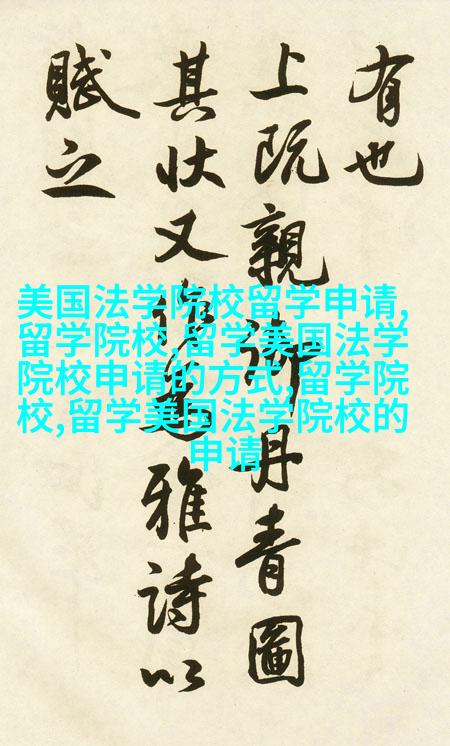 有也
上既親御丹青圖
其状又雅詩以
賦之
美国法学院校留学申请,
留学院校,留学美国法学
院校申请的方式,留学院
校,留学美国法学院校的
申请